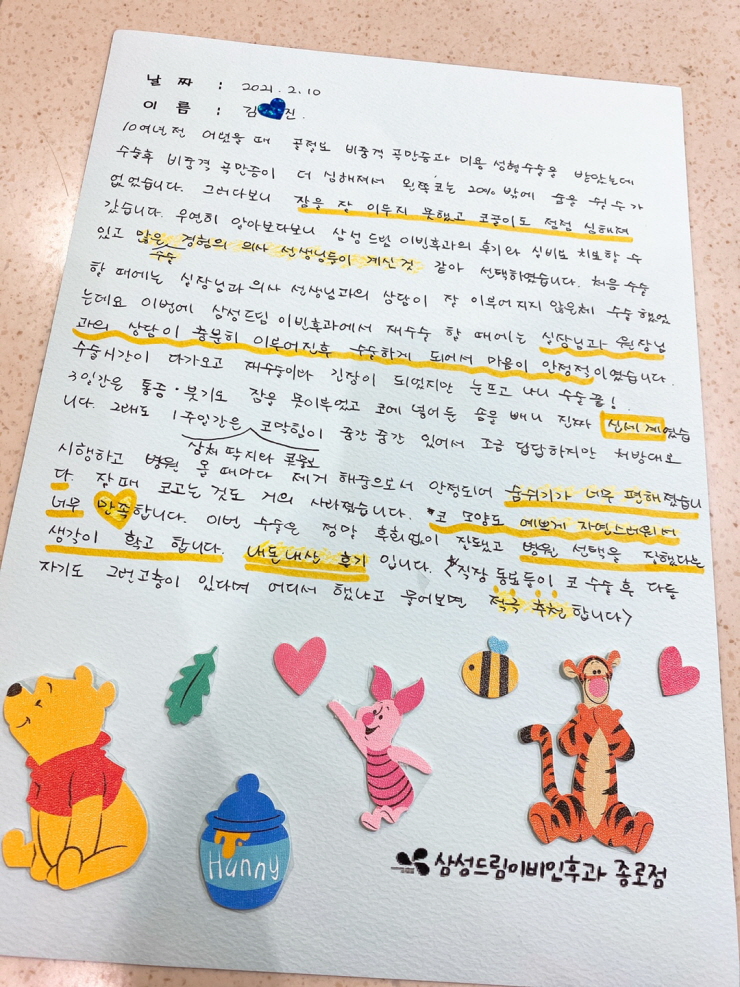 날 짜 : 2021. 2. 10
이 름 : 김 진.
10여년 전 어렸을 때 골절로 비중격 곡만증과 미용 성형수술을 받았는데
수술후 비중격 곡만증이 더 심해져서 왼쪽코는 20% 밖에 숨을 쉴 수가
없었습니다. 그러다보니 잠을 잘 이루지 못했고 코골이도 점점 심해져
갔습니다. 우연히 알아보다보니 삼성드림 이빈후과의 후기와 실비로 치료할 수
있고 많은 경험의 의사 선생님들이 계신 것 같아 선택하였습니다. 처음 수술
수술
할 때에는 실장님과 의사 선생님과의 상담이 잘 이루어지지 않은채 수술했었
는데요 이번에 삼성드림 이빈후과에서 재수술 할 때에는 실장님과 원장님
과의 상담이 충분히 이루어진후 수술하게 되어서 마음이 안정적이였습니다.
수술시간이 다가오고 재수술이라 긴장이 되었지만 눈뜨고 나니 수술 끝!
3일간은 통증·붓기로 잠을 못이루었고 코에 넣어둔 솜을 빼니 진짜 신세계였습
니다. 그래도 1주일간은 코막힘이 중간중간 있어서 조금 답답하지만 처방대로
상처 딱지와 콧물로
시행하고 병원 올 때마다 제거 해줌으로서 안정되어 숨쉬기가 너무 편해졌습니
다. 잘때 코고는 것도 거의 사라졌습니다. *코 모양도 예쁘게 자연스러워서
너무 만족합니다. 이번 수술은 정말 후회없이 잘됐고 병원 선택을 잘했다는
생각이 확고 합니다. 내돈내산 후기 입니다. <*직장 동료들이 코 수술 후 다들
자기도 그런고충이 있다며 어디서 했냐고 물어보면 적극 추천합니다>
Hunny
삼성드림이비인후과 종로점